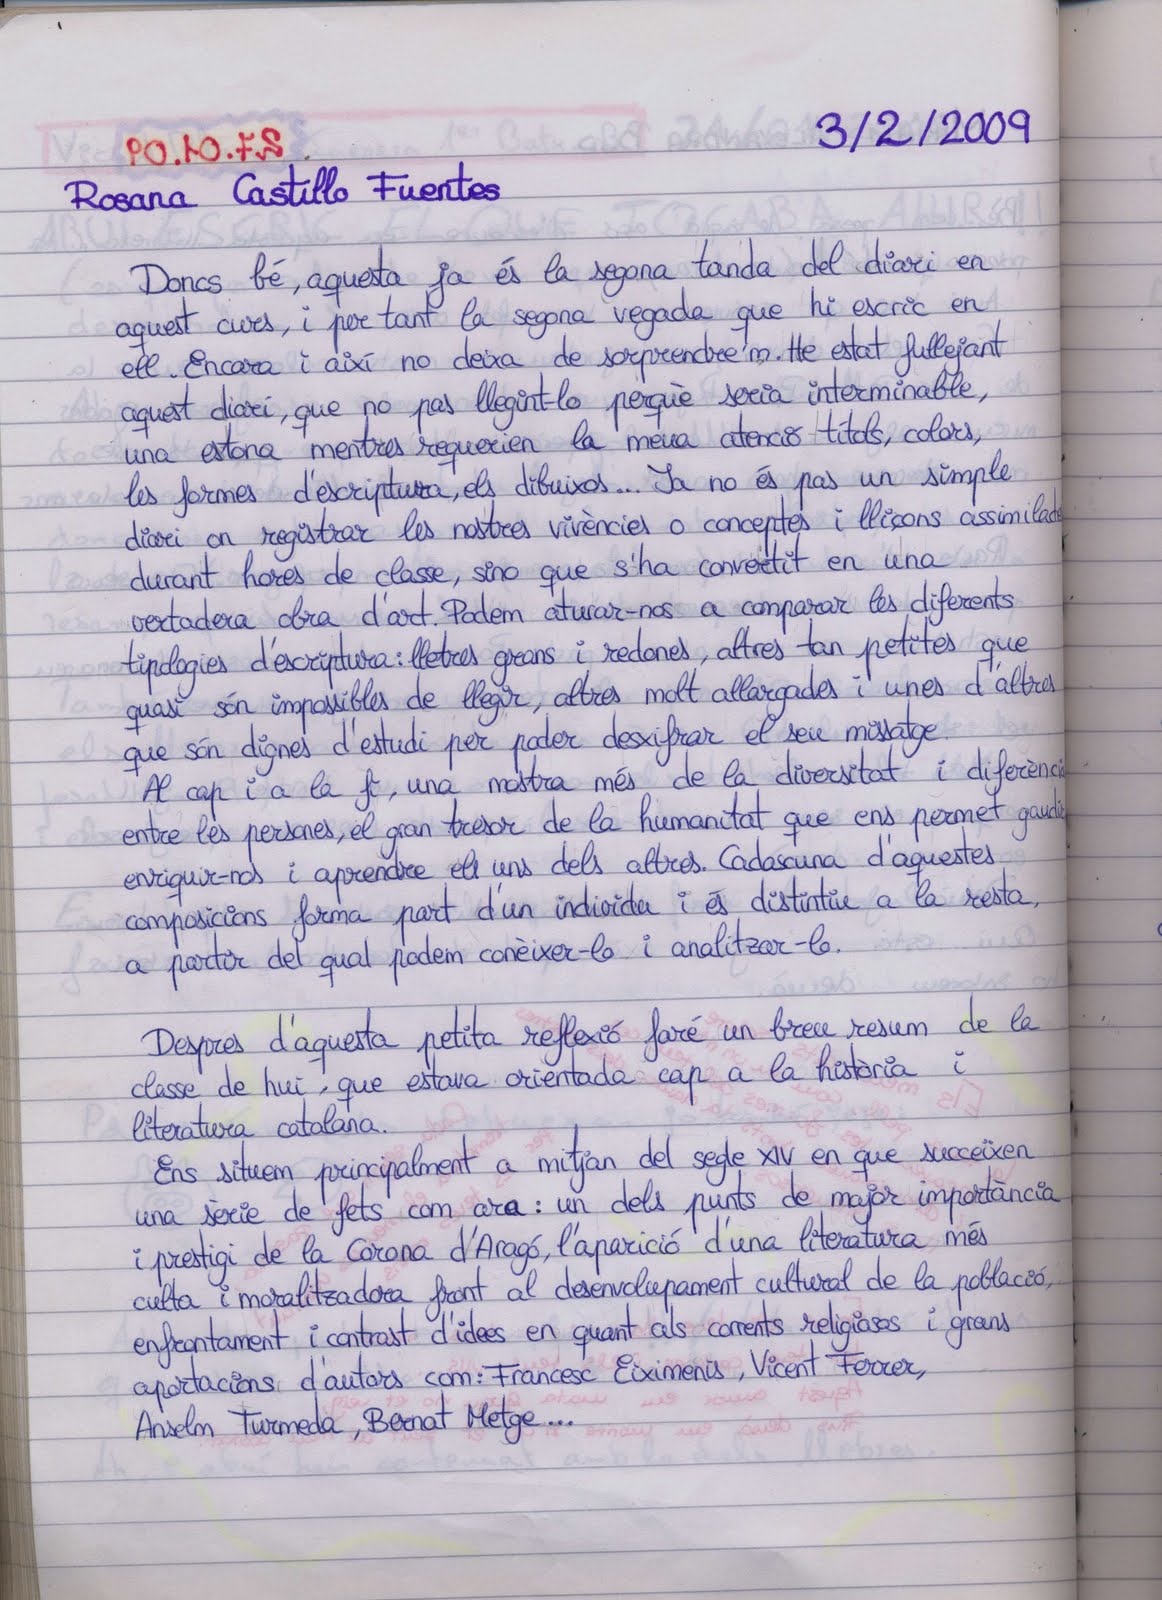 3/2/2009
Rosana Castillo Fuentes
Doncs bé, aquesta ja és la segona tanda del diari en
aquest curs, i per tant la segona vegada que hi escric en
ell. Encara i així no deixa de sorprendre'm. He estat fullejant
aquest diari, que no pas llegint-lo perquè seria interminable,
una estona mentres requerien la meua atenció titols, colors,
les formes d'escriptura, els dibuixos... Ja no és pas un simple
diari on registrar les nostres vivències o conceptes i lliçons assimilades
durant hores de classe, sino que s'ha convertit en una
vertadera obra d'art. Podem aturar-nos a comparar les diferents
tipologies d'escriptura: lletres grans i redones, altres tan petites que
quasi són impossibles de llegir, altres molt allargades i unes d'altres
que són dignes d'estudi per poder desxifrar el seu missatge.
Al cap i a la fi, una mostra més de la diversitat i diferència
entre les persones, el gran tresor de la humanitat que ens permet gaudir
enriquir-nos i aprendre els uns dels altres. Cadascuna d'aquestes
composicions forma part d'un individu i és distintiu a la resta,
a partir del qual podem conèixer-lo i analitzar-lo.
Despres d'aquesta petita reflexió faré un breu resum de la
classe de hui, que estava orientada cap a la història i
literatura catalana.
Ens situem principalment a mitjan del segle XIV en que succeixen
una sèrie de fets com ara: un dels punts de major importància
i prestigi de la Corona d'Aragó, l'aparició d'una literatura més
culta i moralitzadora front al desenvolupament cultural de la població,
enfrontament i contrast d'idees en quant als corrents religiosos i grans
aportacions d'autors com: Francesc Eiximenis, Vicent Ferrer,
Anselm Turmeda, Bernat Metge...